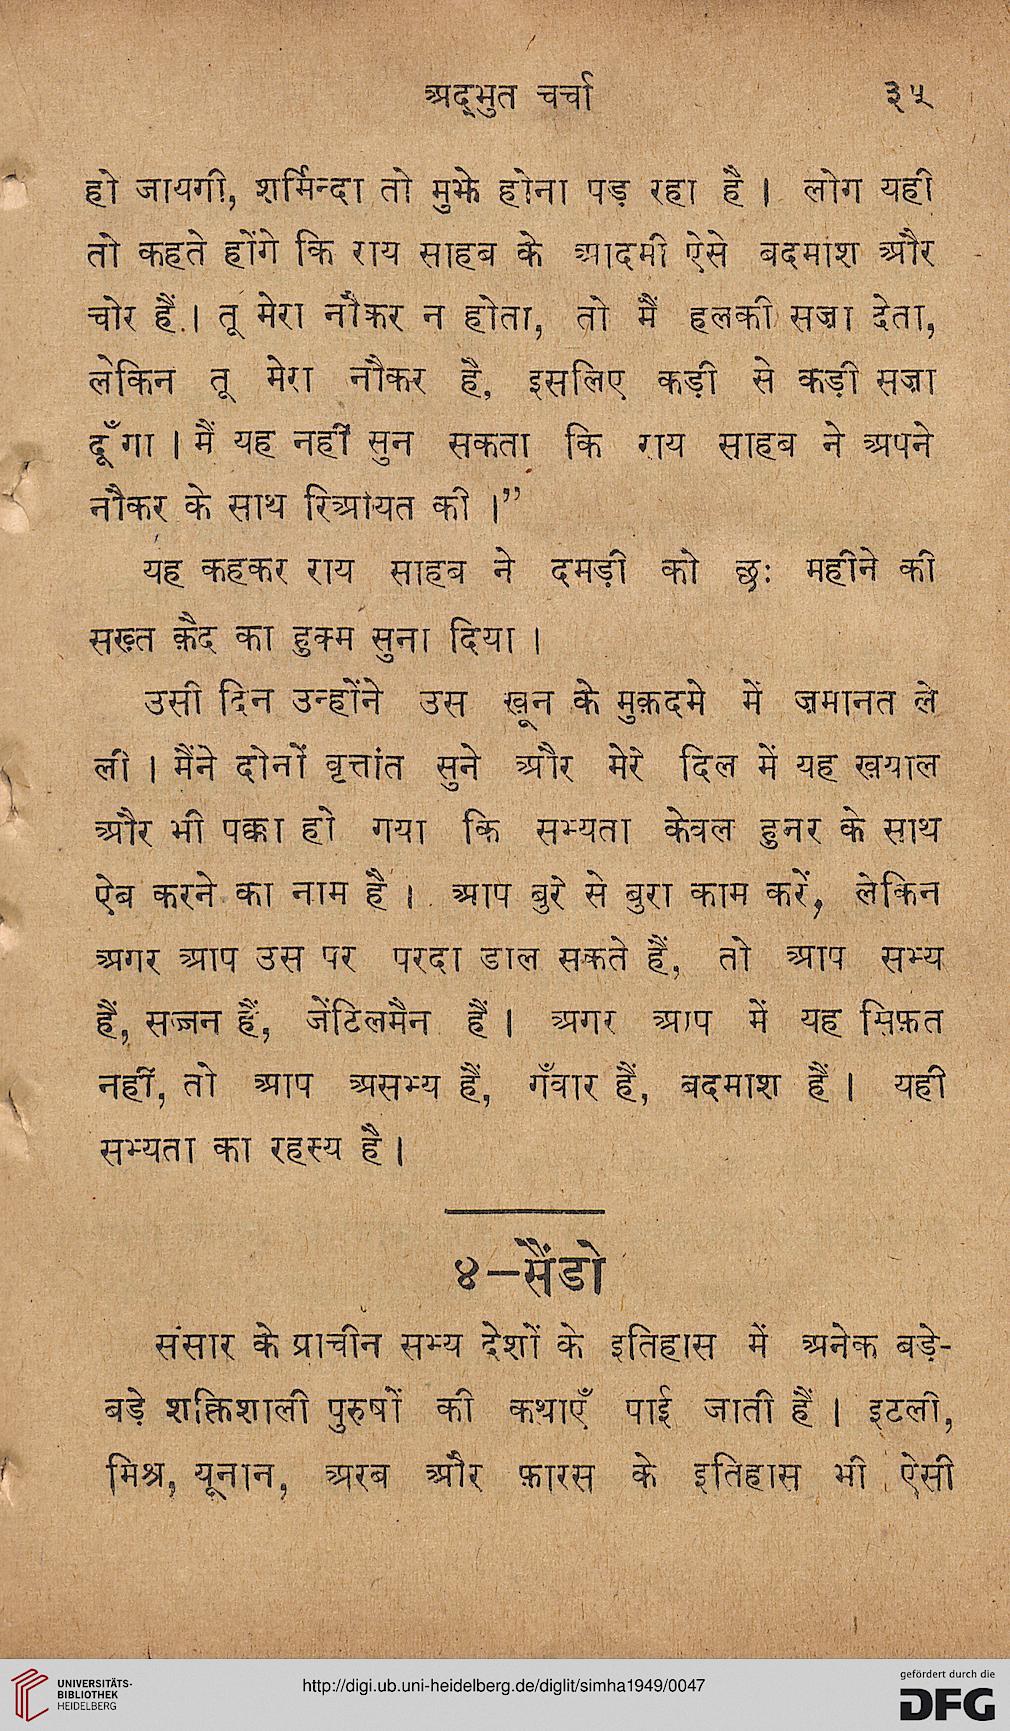 अद्भुत चर्चा ३५
हो जायगी, शर्मिन्दा तो मुझे होना पड़ रहा है। लोग यही
तो कहते होंगे कि राय साहब के आदमी ऐसे बदमाश और
चोर हैं। तू मेरा नौकर न होता, तो मैं हलकी सज़ा देता,
लेकिन तू मेरा नौकर है, इसलिए कड़ी से कड़ी सज़ा
दूँगा। मैं यह नहीं सुन सकता कि राय साहब ने अपने
नौकर के साथ रिआयत की।”
यह कहकर राय साहब ने दमड़ी को छः महीने की
सख़्त क़ैद का हुक्म सुना दिया।
उसी दिन उन्होंने उस ख़ून के मुक़दमे में ज़मानत ले
ली। मैंने दोनों वृत्तांत सुने और मेरे दिल में यह ख़याल
और भी पक्का हो गया कि सभ्यता केवल हुनर के साथ
ऐब करने का नाम है। आप बुरे से बुरा काम करें, लेकिन
अगर आप उस पर परदा डाल सकते हैं, तो आप सभ्य
हैं, सज्जन हैं, जेंटिलमैन हैं। अगर आप में यह सिफ़त
नहीं, तो आप असभ्य हैं, गँवार हैं, बदमाश हैं। यही
सभ्यता का रहस्य है।
४—सैंडो
संसार के प्राचीन सभ्य देशों के इतिहास में अनेक बड़े-
बड़े शक्तिशाली पुरुषों की कथाएँ पाई जाती हैं। इटली,
मिश्र, यूनान, अरब और फ़ारस के इतिहास भी ऐसी
UNIVERSITÄTS-
BIBLIOTHEK
HEIDELBERG
http://digi.ub.uni-heidelberg.de/diglit/simha1949/0047
gefördert durch die
DFG